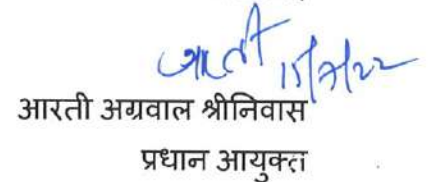 आरती 15/7/22
आरती अग्रवाल श्रीनिवास
प्रधान आयुक्त